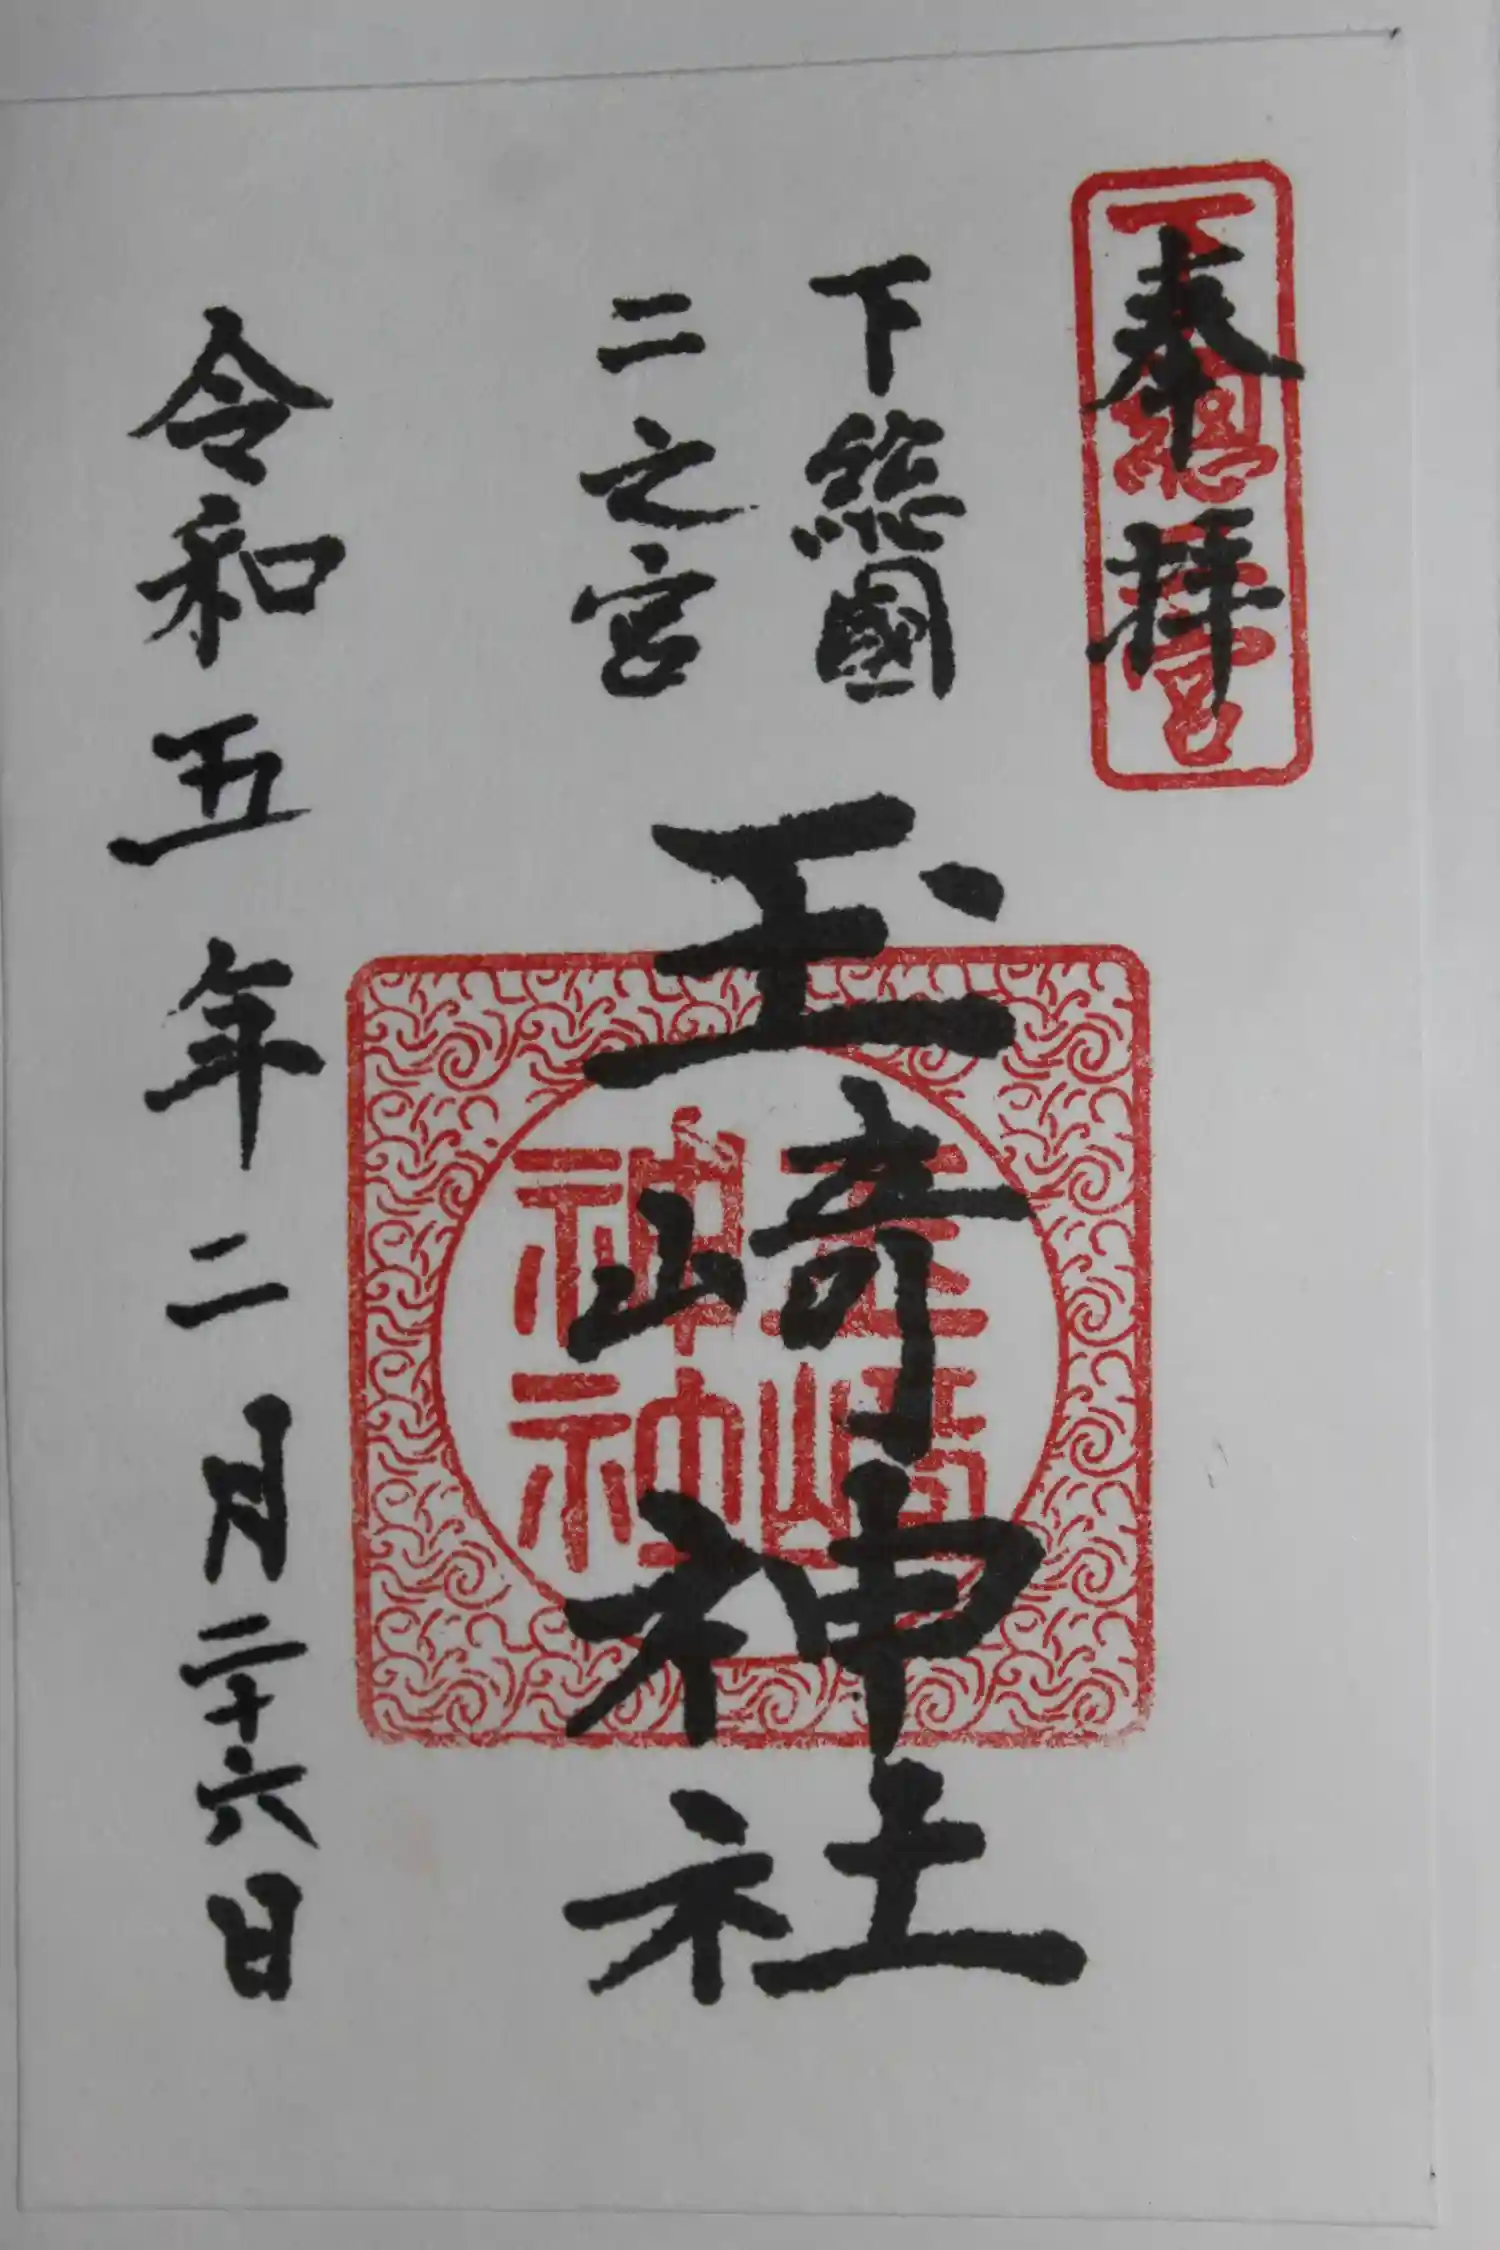 奉拝
下總二宮
下総國
二之宮
玉﨑神社
玉﨑
神社
令和五年二月二十六日